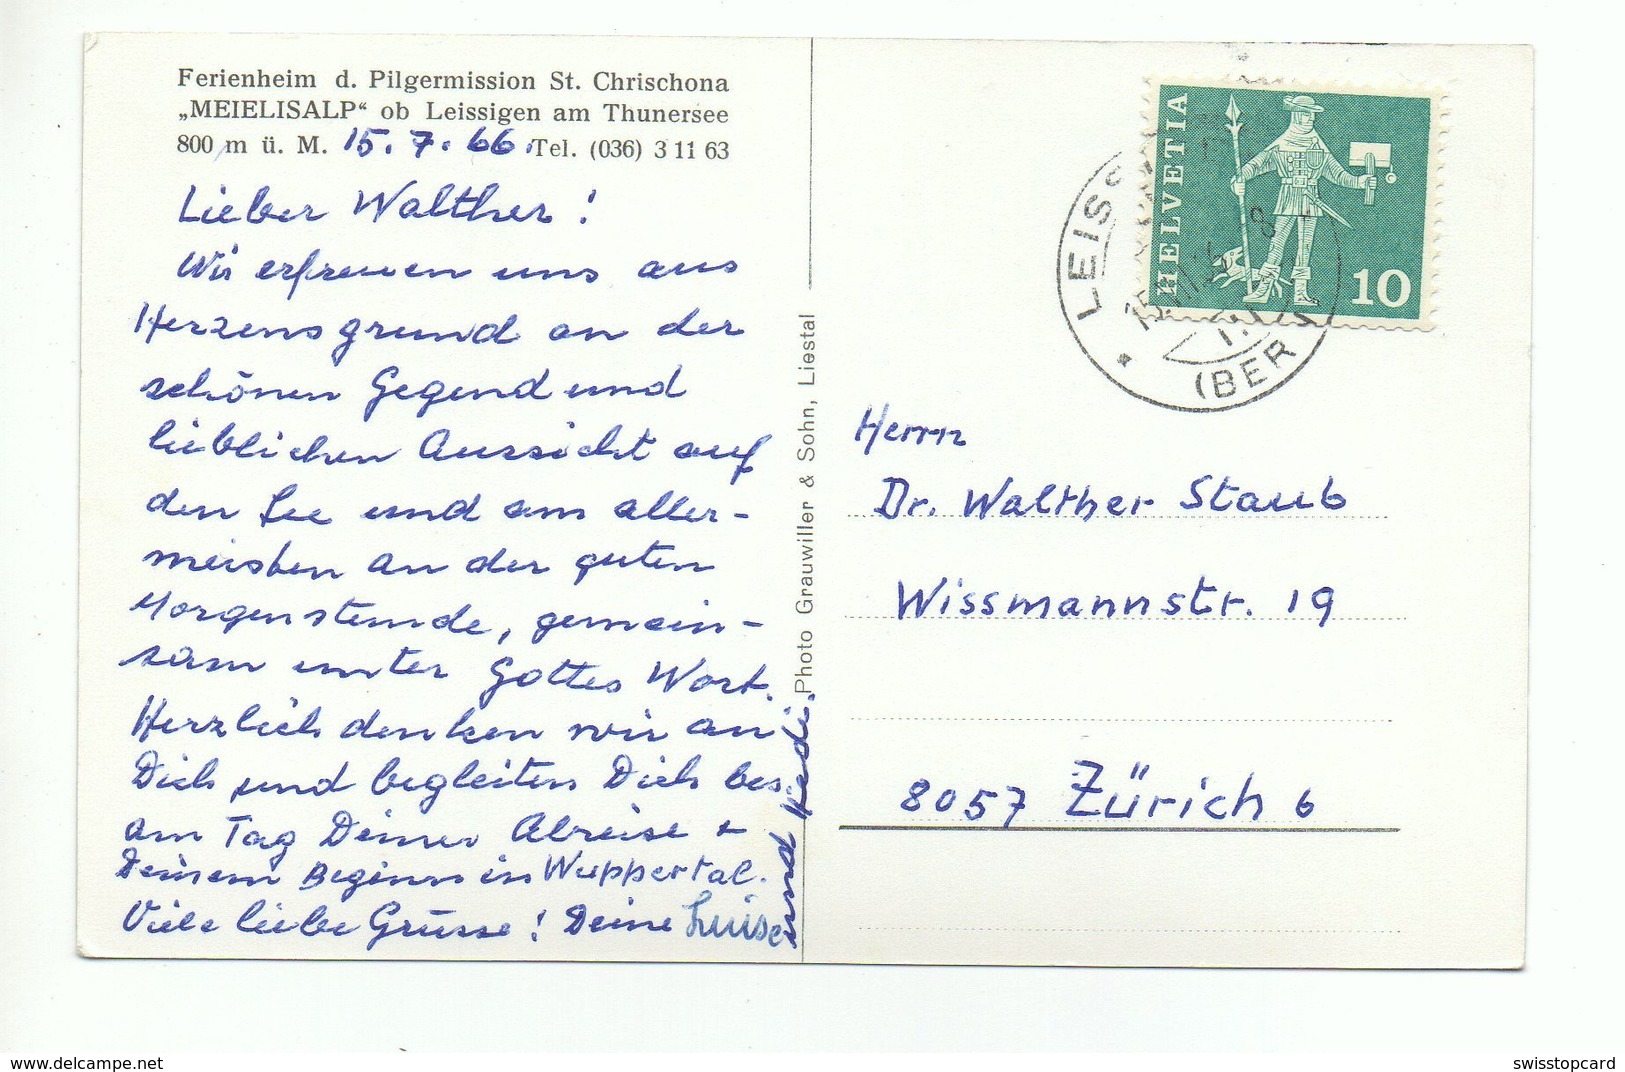 Ferienheim d. Pilgermission St. Chrischona
„MEIELISALP“ ob Leissigen am Thunersee
800 m ü. M. 15. 7. 66. Tel. (036) 3 11 63
Lieber Walther!
Wir erfreuen uns aus
Herzensgrund an der
schönen Gegend und
lieblichen Aussicht auf
den See und am aller-
meisten an der guten
Morgenstunde, gemein-
sam unter Gottes Wort.
Herzlich denken wir an
Dich und begleiten Dich bes.
am Tag Deiner Abreise +
Deinem Beginn in Wuppertal.
Viele liebe Grüsse! Deine Luise
und Hedi.
Photo Grauwiller & Sohn, Liestal
HELVETIA
10
LEISS
(BER
Herrn
Dr. Walther Staub
Wissmannstr. 19
8057 Zürich 6
www.delcampe.net
swisstopcard